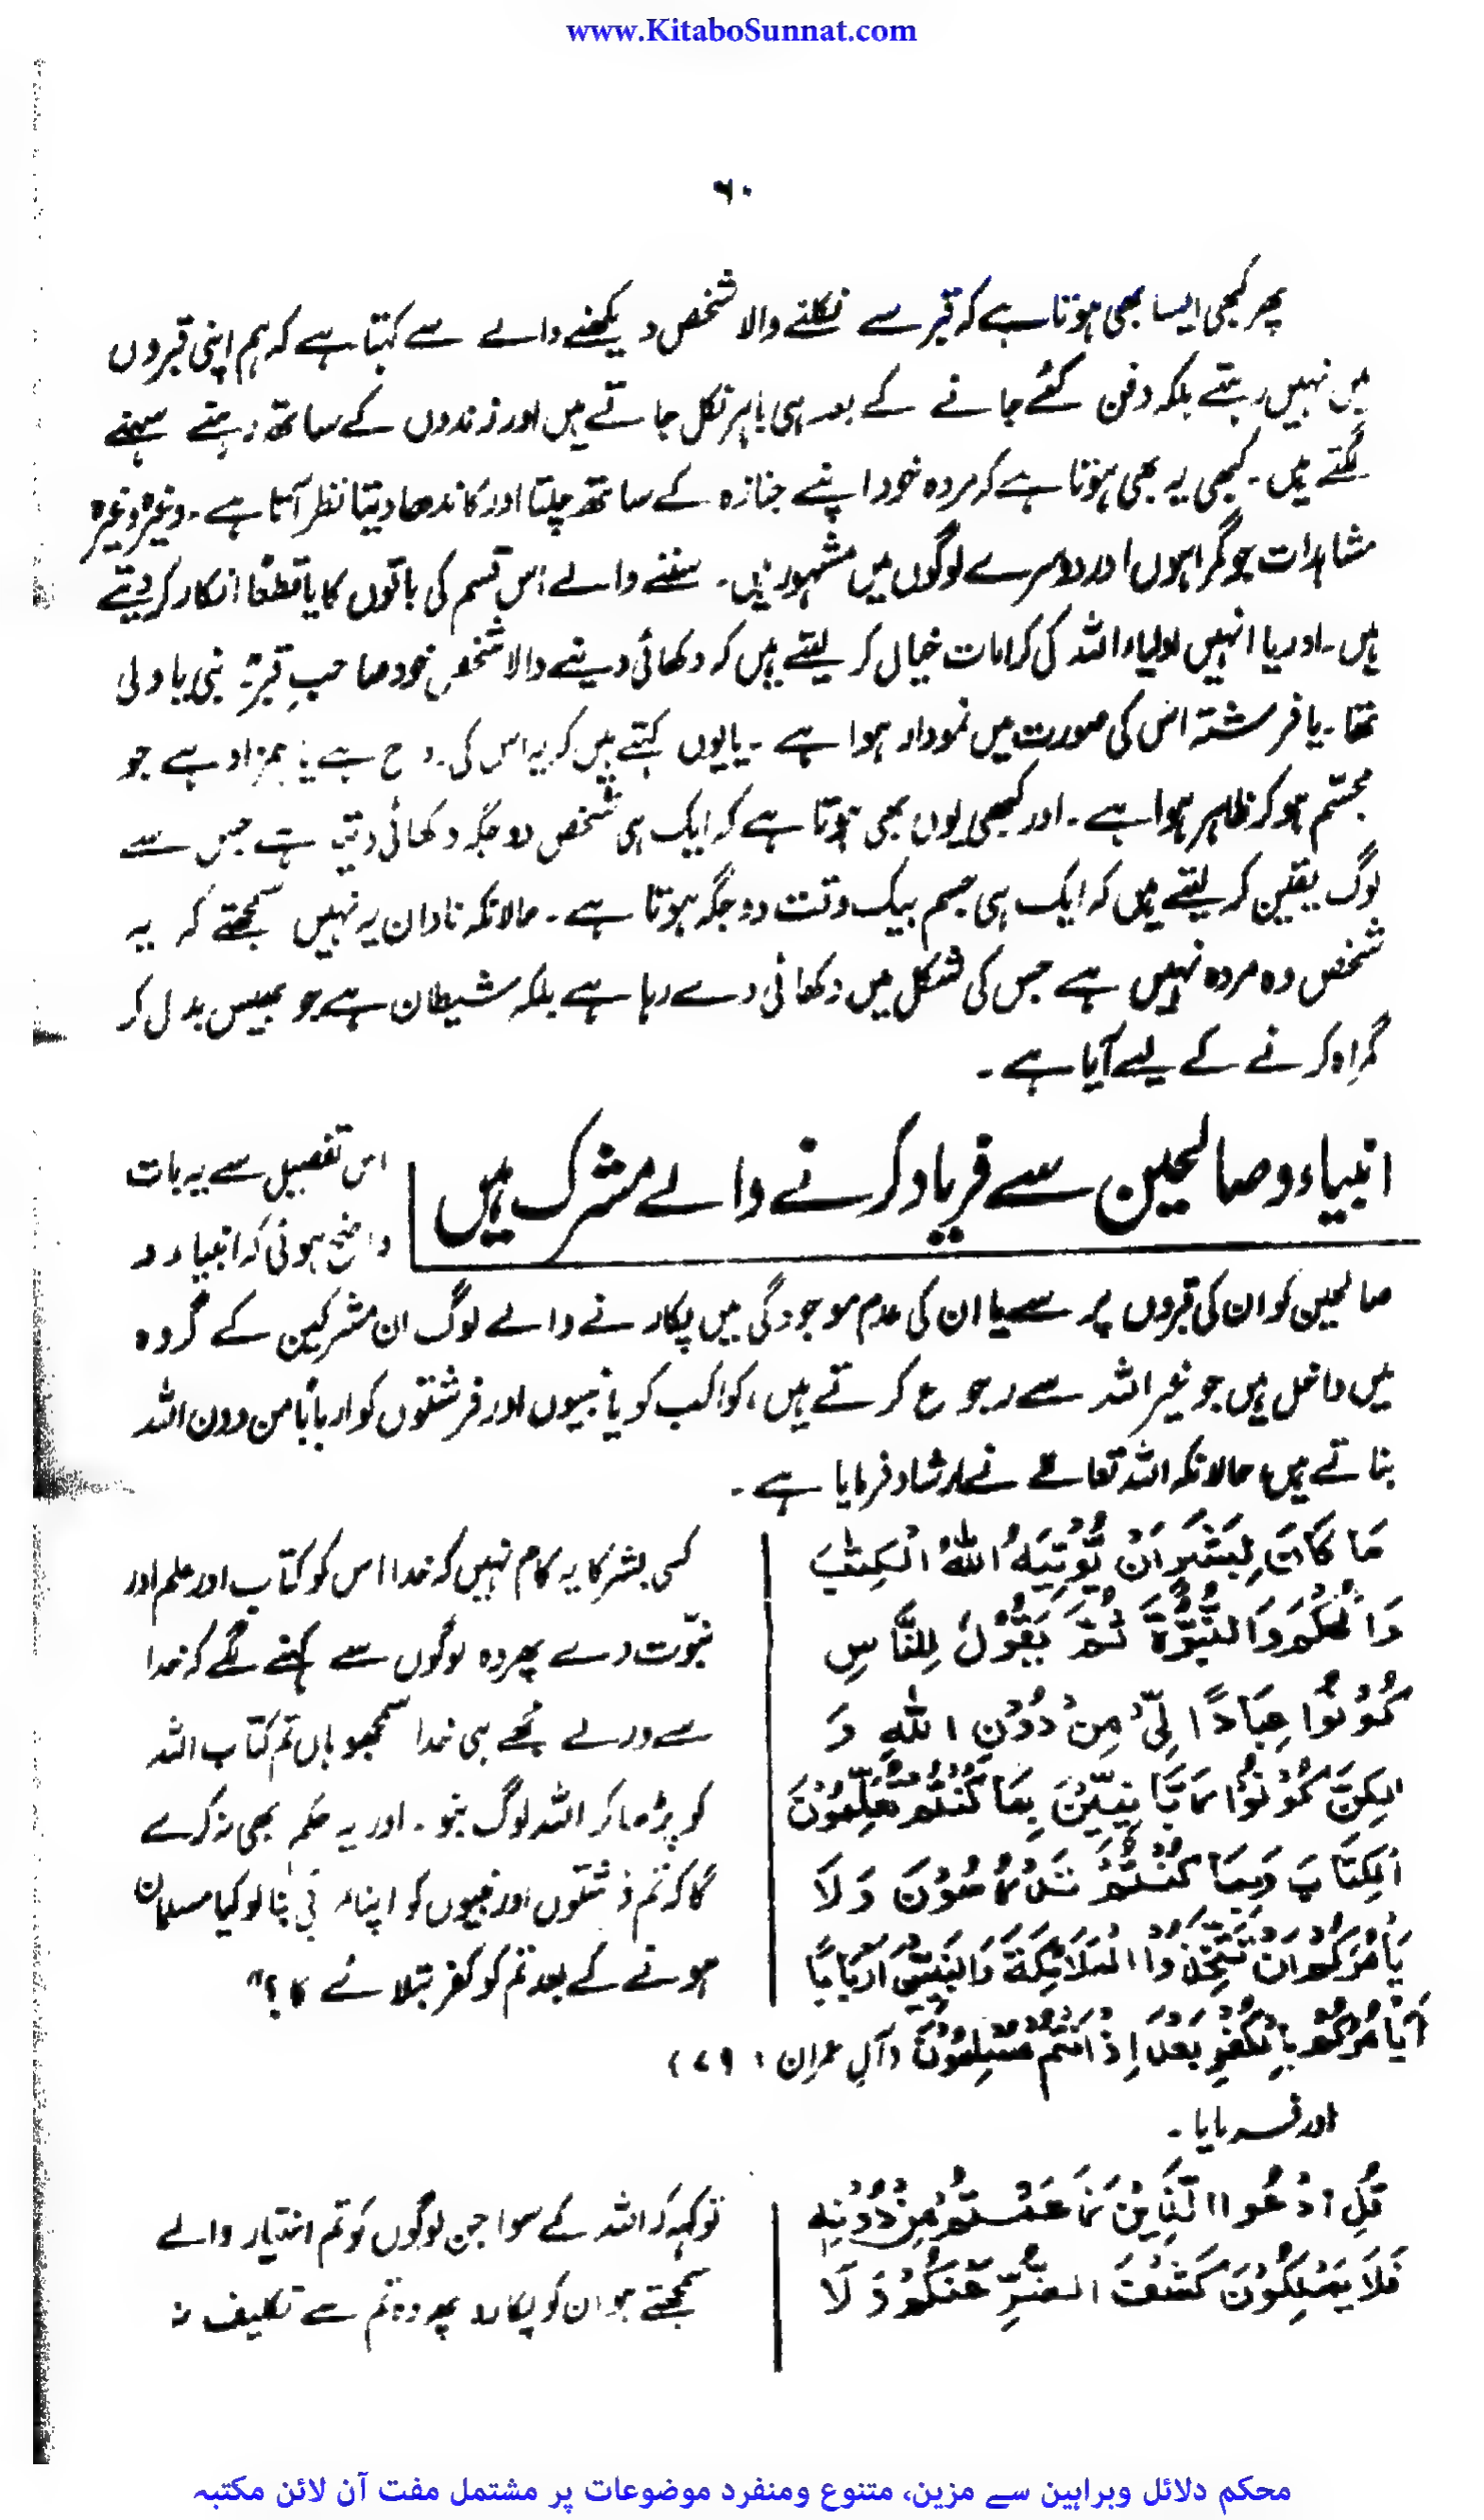 www.KitaboSunnat.com
۶۰
پھر کبھی ایسا بھی ہوتا ہے کہ قبر سے نکلنے والا شخص دیکھنے والے سے کہتا ہے کہ ہم اپنی قبروں
میں نہیں رہتے بلکہ دفن کئے جانے کے بعد ہی باہر نکل جاتے ہیں اور زندوں کے ساتھ رہتے سہنے
لگتے ہیں۔ کبھی یہ بھی ہوتا ہے کہ مردہ خود اپنے جنازہ کے ساتھ چلتا اور کاندھا دیتا نظر آتا ہے۔ وغیرہ وغیرہ
مشاہدات جو گمراہوں اور دوسرے لوگوں میں مشہور ہیں۔ سننے والے اس قسم کی باتوں کا یا قطعًا انکار کر دیتے
ہیں۔ اور یا انہیں اولیاء اللہ کی کرامات خیال کر لیتے ہیں کہ دکھائی دینے والا شخص خود صاحبِ قبر، نبی یا ولی
تھا۔ یا فرشتہ اس کی صورت میں نمودار ہوا ہے۔ یا یوں کہتے ہیں کہ یہ اس کی روح ہے یا ہمزاد ہے جو
مجسّم ہو کر ظاہر ہوا ہے۔ اور کبھی یوں بھی ہوتا ہے کہ ایک ہی شخص دو جگہ دکھائی دیتا ہے جس سے
لوگ یقین کر لیتے ہیں کہ ایک ہی جسم بیک وقت دو جگہ ہوتا ہے۔ حالانکہ نادان یہ نہیں سمجھتے کہ یہ
شخص وہ مردہ نہیں ہے جس کی شکل میں دکھائی دے رہا ہے بلکہ شیطان ہے جو بھیس بدل کر
گمراہ کرنے کے لیے آیا ہے۔
انبیاء و صالحین سے فریاد کرنے والے مشرک ہیں
اس تفصیل سے یہ بات
واضح ہوئی کہ انبیاء و
صالحین کو ان کی قبروں پر سے یا ان کی عدم موجودگی میں پکارنے والے لوگ ان مشرکین کے گروہ
میں داخل ہیں جو غیر اللہ سے رجوع کرتے ہیں، کواکب کو یا نبیوں اور فرشتوں کو اربابًا من دون اللہ
بناتے ہیں، حالانکہ اللہ تعالےٰ نے ارشاد فرمایا ہے۔
مَا كَانَ لِبَشَرٍ اَنْ يُّؤْتِيَهُ اللّٰهُ الْكِتٰبَ
وَالْحُكْمَ وَالنُّبُوَّةَ ثُمَّ يَقُوْلَ لِلنَّاسِ
كُوْنُوْا عِبَادًا لِّيْ مِنْ دُوْنِ اللّٰهِ وَ
لٰكِنْ كُوْنُوْا رَبَّانِيّٖنَ بِمَا كُنْتُمْ تُعَلِّمُوْنَ
الْكِتَابَ وَبِمَا كُنْتُمْ تَدْرُسُوْنَ وَلَا
يَأْمُرَكُمْ اَنْ تَتَّخِذُوا الْمَلَائِكَةَ وَالنَّبِيّٖنَ اَرْبَابًا
اَيَأْمُرُكُمْ بِالْكُفْرِ بَعْدَ اِذْ اَنْتُمْ مُّسْلِمُوْنَ (آل عمران : ۷۹)
کسی بشر کا یہ کام نہیں کہ خدا اس کو کتاب اور علم اور
نبوّت دے پھر وہ لوگوں سے کہنے لگے کہ خدا
سے ورلے مجھے ہی خدا سمجھو ہاں تم کتاب اللہ
کو پڑھا کر اللہ لوگ بنو۔ اور یہ حکم بھی نہ کرے
گا کہ تم فرشتوں اور نبیوں کو اپنا مربی بنا لو کیا مسلمان
ہونے کے بعد تم کو کفر بتلائے گا؟"
اور فرمایا۔
قُلِ ادْعُوا الَّذِيْنَ زَعَمْتُمْ مِّنْ دُوْنِهٖ
فَلَا يَمْلِكُوْنَ كَشْفَ الضُّرِّ عَنْكُمْ وَلَا
تو کہہ کہ اللہ کے سوا جن لوگوں کو تم اختیار والے
سمجھتے ہو ان کو پکارو پھر وہ تم سے تکلیف نہ
محکم دلائل وبراہین سے مزین، متنوع ومنفرد موضوعات پر مشتمل مفت آن لائن مکتبہ